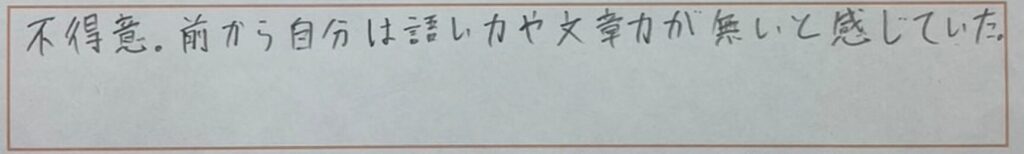 不得意。前から自分は語い力や文章力が無いと感じていた。